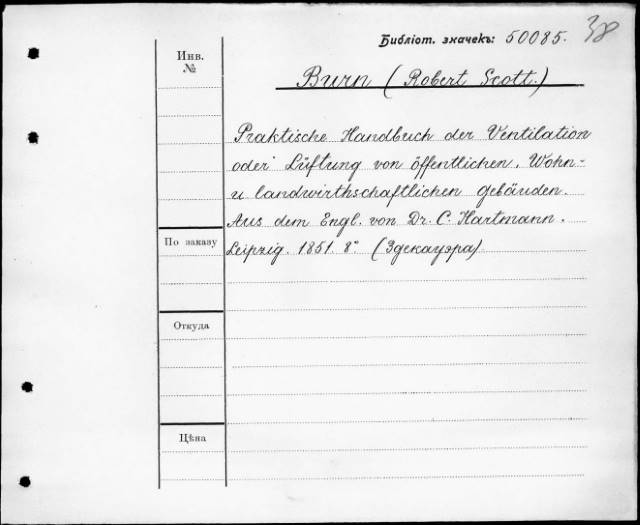 Библіот. значекъ: 50085. 38
Инв. №
Burn (Robert Scott.)
Praktische Handbuch der Ventilation
oder Lüftung von öffentlichen, Wohn-
u landwirthschaftlichen gebäuden.
Aus dem Engl. von Dr. C. Hartmann.
По заказу
Leipzig. 1851. 8° (Здекауэра)
Откуда
Цѣна